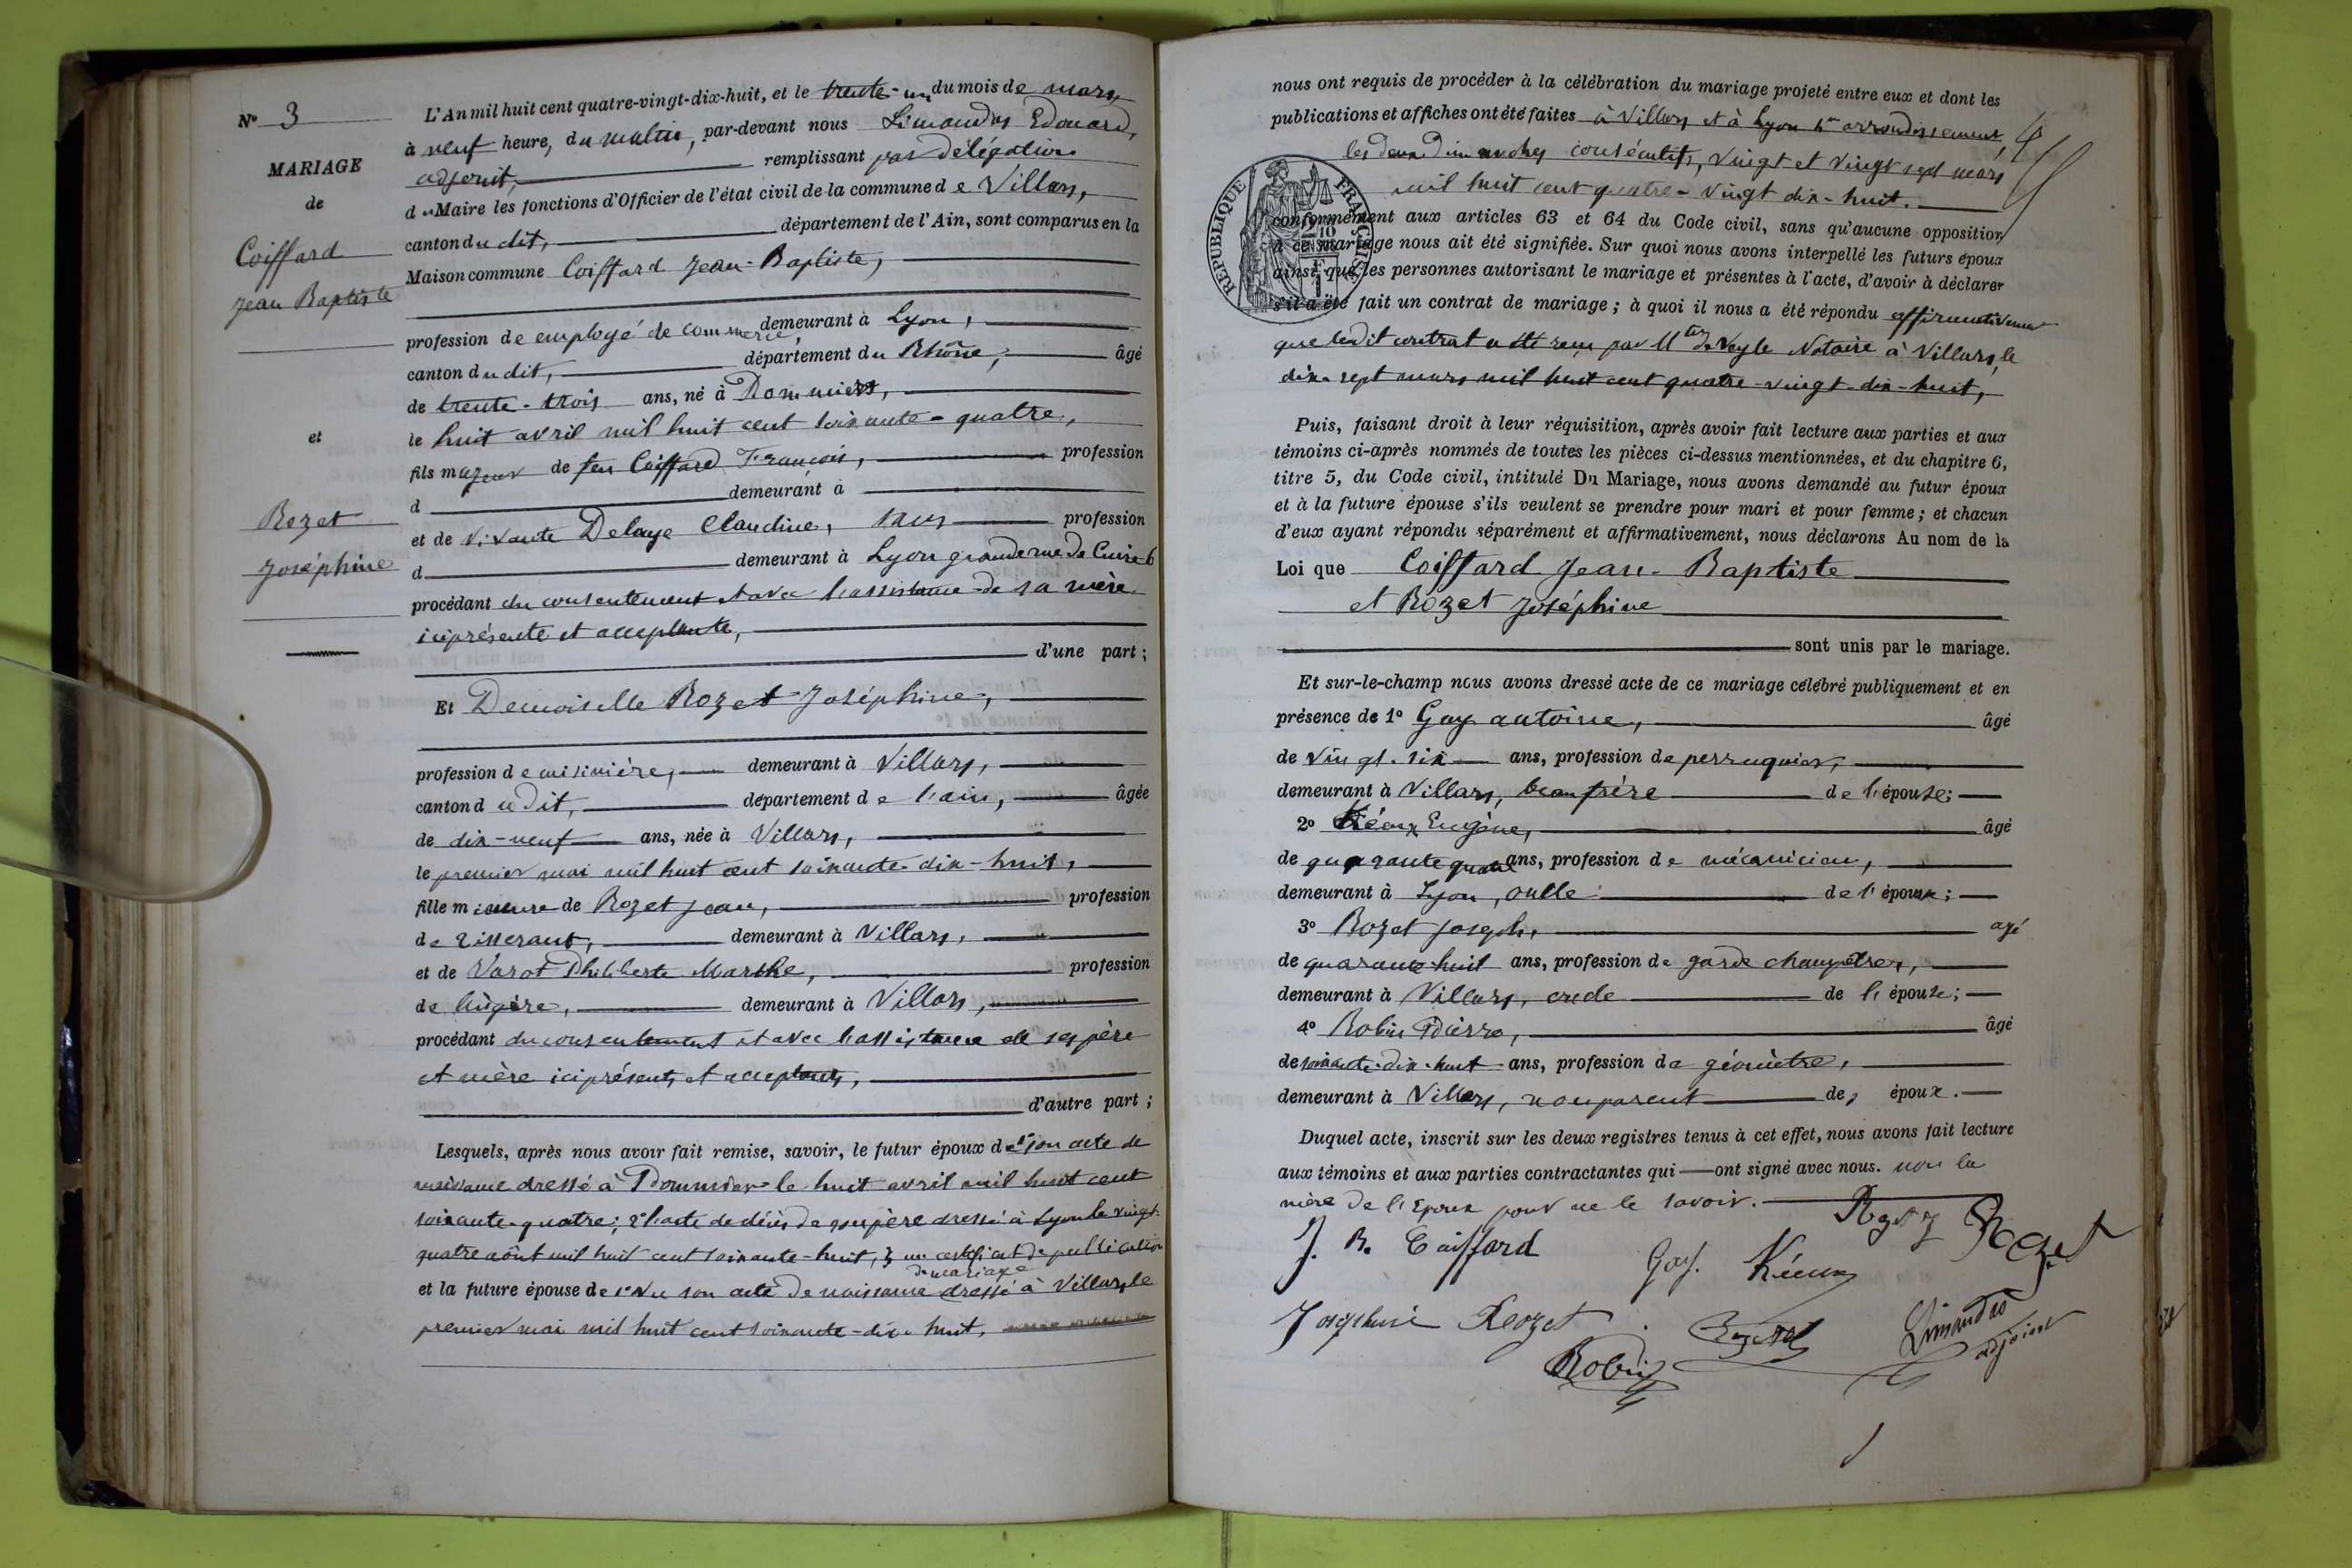 N° 3
MARIAGE
de
Coiffard
Jean Baptiste
et
Rozet
Joséphine
L'An mil huit cent quatre-vingt-dix-huit, et le trente-un du mois de mars,
à neuf heure, du matin, par-devant nous Limandas Edouard,
adjoint, remplissant par délégation
du Maire les fonctions d'Officier de l'état civil de la commune de Villars,
canton du dit, département de l'Ain, sont comparus en la
Maison commune Coiffard Jean-Baptiste,
profession de employé de commerce, demeurant à Lyon,
canton du dit, département du Rhône, âgé
de trente-trois ans, né à Dommier,
le huit avril mil huit cent soixante-quatre,
fils majeur de feu Coiffard François, profession
d demeurant à
et de vivante Delaye Claudine, sans profession
d demeurant à Lyon grande rue de Cuire 6
procédant du consentement et avec l'assistance de sa mère
ici présente et acceptante,
d'une part;
Et Demoiselle Rozet Joséphine,
profession de cuisinière, demeurant à Villars,
canton du dit, département de l'ain, âgée
de dix-neuf ans, née à Villars,
le premier mai mil huit cent soixante-dix-huit,
fille mineure de Rozet Jean, profession
de tisserant, demeurant à Villars,
et de Varot Philiberte Marthe, profession
de lingère, demeurant à Villars,
procédant du consentement et avec l'assistance de ses père
et mère ici présents et acceptants,
d'autre part;
Lesquels, après nous avoir fait remise, savoir, le futur époux de 1° son acte de
naissance dressé à Dommier le huit avril mil huit cent
soixante-quatre; 2° l'acte de décès de son père dressé à Lyon le vingt-
quatre août mil huit cent soixante-huit, 3 un certificat de publication
de mariage
et la future épouse de 1° son acte de naissance dressé à Villars, le
premier mai mil huit cent soixante-dix-huit,
nous ont requis de procéder à la célébration du mariage projeté entre eux et dont les
publications et affiches ont été faites à Villars et à Lyon arrondissement,
les deux Dimanches consécutifs, vingt et vingt sept mars
mil huit cent quatre-vingt dix-huit.
RÉPUBLIQUE FRANÇAISE
conformément aux articles 63 et 64 du Code civil, sans qu'aucune opposition
à ce mariage nous ait été signifiée. Sur quoi nous avons interpellé les futurs époux
ainsi que les personnes autorisant le mariage et présentes à l'acte, d'avoir à déclarer
s'il a été fait un contrat de mariage; à quoi il nous a été répondu affirmativement
que ledit contrat a été reçu par Mtre de Veyle Notaire à Villars, le
dix-sept mars mil huit cent quatre-vingt-dix-huit,
Puis, faisant droit à leur réquisition, après avoir fait lecture aux parties et aux
témoins ci-après nommés de toutes les pièces ci-dessus mentionnées, et du chapitre 6,
titre 5, du Code civil, intitulé Du Mariage, nous avons demandé au futur époux
et à la future épouse s'ils veulent se prendre pour mari et pour femme; et chacun
d'eux ayant répondu séparément et affirmativement, nous déclarons Au nom de la
Loi que Coiffard Jean-Baptiste
et Rozet Joséphine
sont unis par le mariage.
Et sur-le-champ nous avons dressé acte de ce mariage célébré publiquement et en
présence de 1° Gay antoine, âgé
de vingt-six ans, profession de perruquier,
demeurant à Villars, beau frère de l'épouse;
2° Kéaux Eugène, âgé
de quarante quatre ans, profession de mécanicien,
demeurant à Lyon, oncle de l'épouse;
3° Rozet Joseph, agé
de quarante huit ans, profession de garde champêtre,
demeurant à Villars, oncle de l'épouse;
4° Robin Pierre, âgé
de soixante-dix-huit ans, profession de géomètre,
demeurant à Villars, non parent des époux.
Duquel acte, inscrit sur les deux registres tenus à cet effet, nous avons fait lecture
aux témoins et aux parties contractantes qui ont signé avec nous. non la
mère de l'Epoux pour ne le savoir.
J. B. Coiffard Gay. Rozet
Joséphine Rozet Limandas
adjoint
Robin